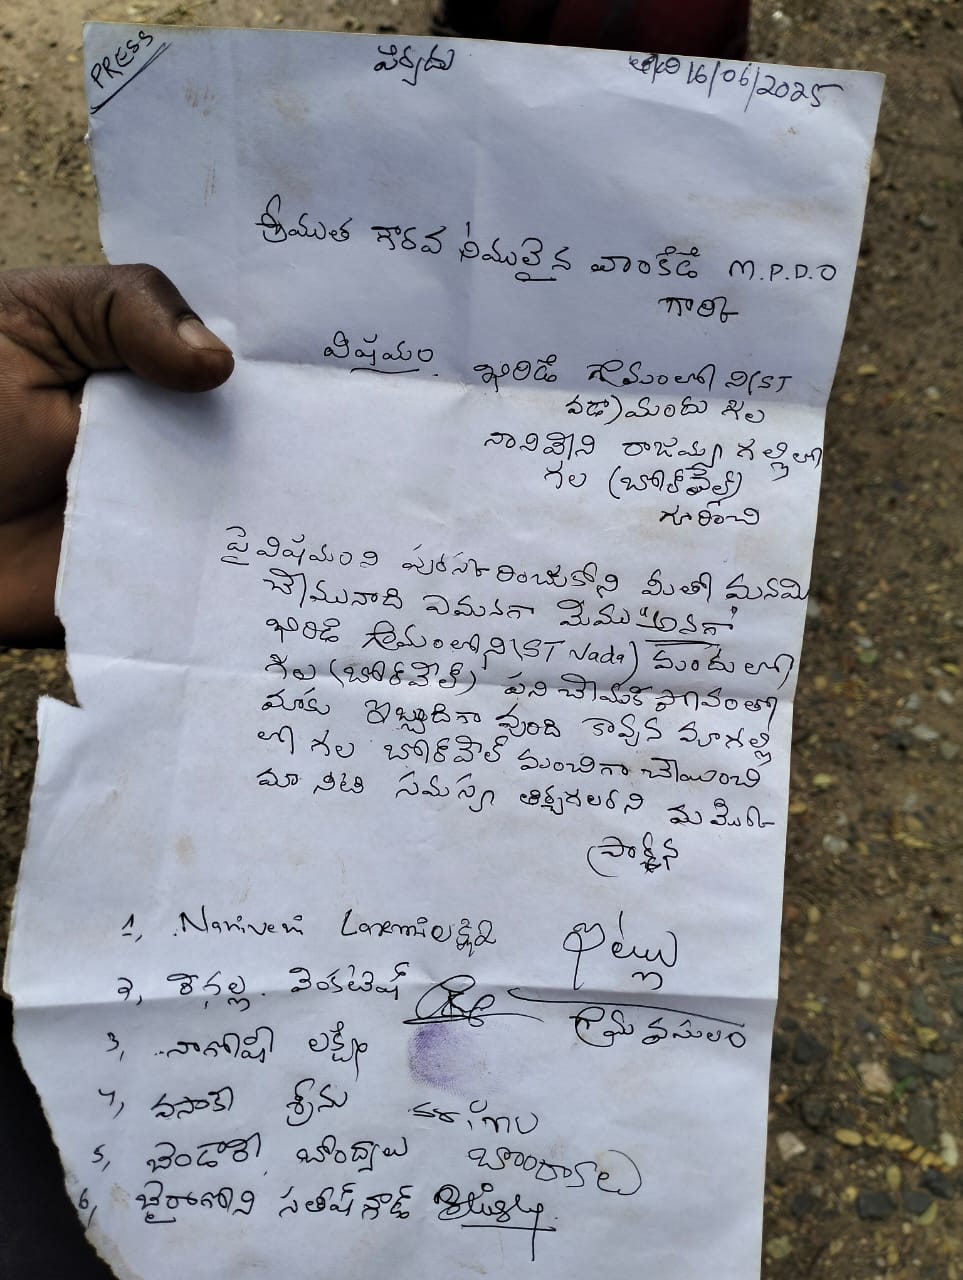 PRESS
వేర్వదు
తేది 16/06/2025
శ్రీయుత గౌరవ నీయులైన వాంకేడే M.P.D.O
గారికి
విషయం. ఖిరిడి గ్రామంలో ని(ST
వడా)ముందు గల
నానివేని రాజమ్మ గల్లిలో
గల (బోర్‌వేల్)
గూరించి
పై విషయంని పురస్కరించుకోని మీతో మనవి
చేయునది ఏమనగా మేము "అనగా"
ఖిరిడి గ్రామంలోని (ST Vada) ముందులో
గల (బోర్‌వేల్) పని చేయక పోవడంతో
మాకు ఇబ్బందిగా వుంది కావున మా గల్లి
లో గల బోర్‌వేల్ మంచిగా చేయించి
మా నీటి సమస్య తీర్చగలరని మ మొక్క
ప్రార్థన
1,
2, వెంకటేష్
గ్రామ వస్థులం
3, లక్ష్మి
4, వసాకే శ్రీను
5, బెండారె
6, బైరాగోని సతీష్ గౌడ్